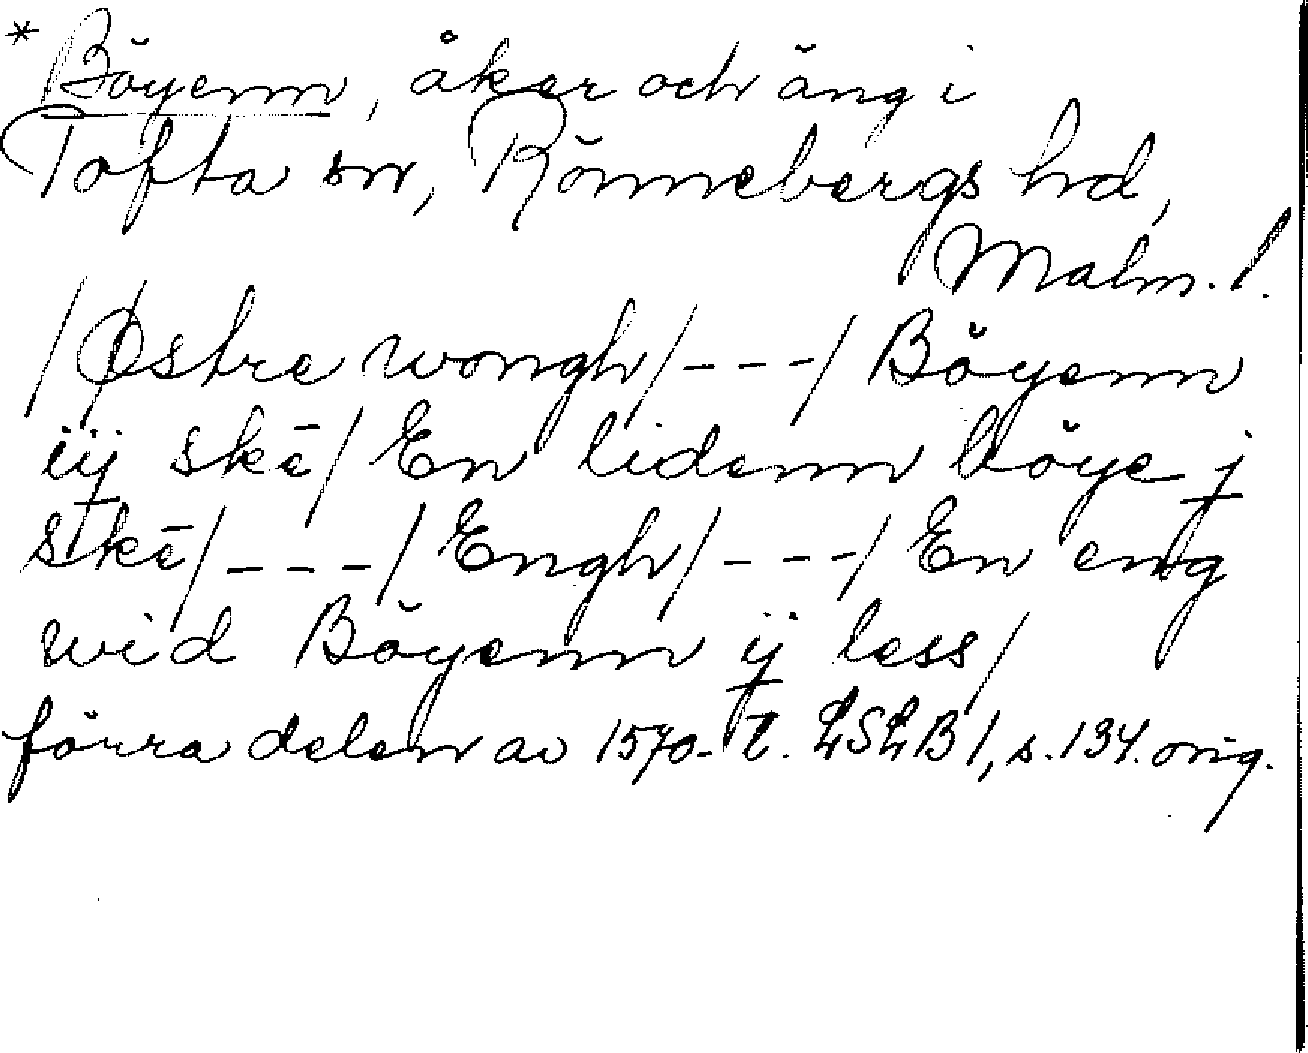 * Böyenn, åker och äng i
Tofta sn, Rönnebergs hd,
Malm. l.
/Østre wongh/---/ Böyenn
iij skē/ En lidenn böye j
skē/---/ Engh/---/ En eng
wid Böyenn ij less/
förra delen av 1570-t. LSLB 1, s. 134. orig.